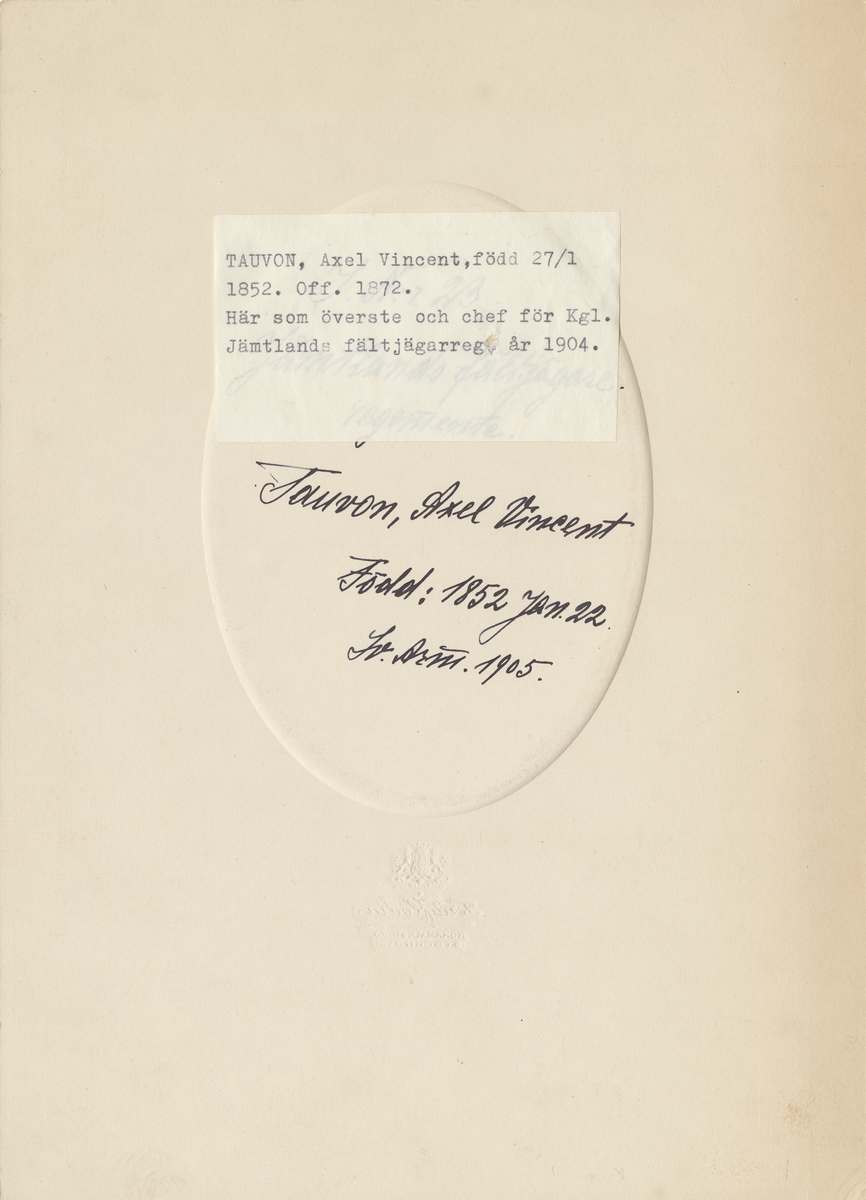 TAUVON, Axel Vincent,född 27/1
1852. Off. 1872.
Här som överste och chef för Kgl.
Jämtlands fältjägarreg. år 1904.
Jämtlands fältjägare
regemente.
Tauvon, Axel Vincent
Född: 1852 Jan. 22.
Sv. Arm. 1905.